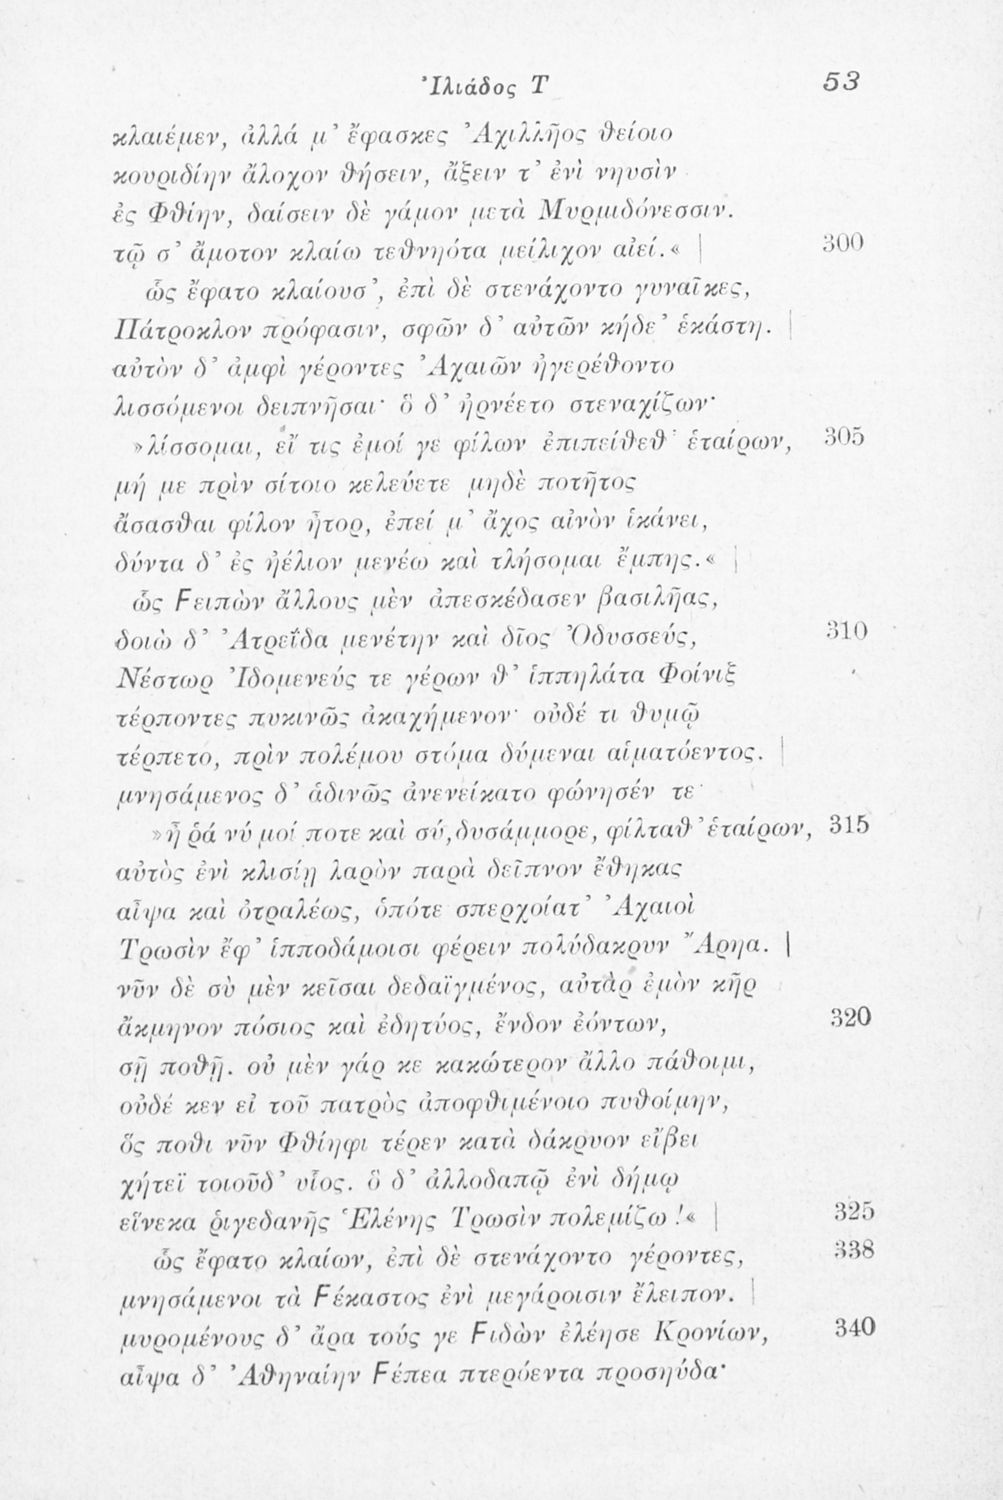 Ἰλιάδος Τ 53
κλαιέμεν, ἀλλά μ’ ἔφασκες Ἀχιλλῆος θείοιο
κουριδίην ἄλοχον θήσειν, ἄξειν τ’ ἐνὶ νηυσὶν
ἐς Φθίην, δαίσειν δὲ γάμον μετὰ Μυρμιδόνεσσιν.
τῷ σ’ ἄμοτον κλαίω τεθνηότα μείλιχον αἰεί.« | 300
ὣς ἔφατο κλαίουσ’, ἐπὶ δὲ στενάχοντο γυναῖκες,
Πάτροκλον πρόφασιν, σφῶν δ’ αὐτῶν κήδε’ ἑκάστη. |
αὐτὸν δ’ ἀμφὶ γέροντες Ἀχαιῶν ἠγερέθοντο
λισσόμενοι δειπνῆσαι· ὃ δ’ ἠρνέετο στεναχίζων·
»λίσσομαι, εἴ τις ἐμοί γε φίλων ἐπιπείθεθ’ ἑταίρων, 305
μή με πρὶν σίτοιο κελεύετε μηδὲ ποτῆτος
ἄσασθαι φίλον ἦτορ, ἐπεί μ’ ἄχος αἰνὸν ἱκάνει,
δύντα δ’ ἐς ἠέλιον μενέω καὶ τλήσομαι ἔμπης.« |
ὣς Ϝειπὼν ἄλλους μὲν ἀπεσκέδασεν βασιλῆας,
δοιὼ δ’ Ἀτρεΐδα μενέτην καὶ δῖος Ὀδυσσεύς, 310
Νέστωρ Ἰδομενεύς τε γέρων θ’ ἱππηλάτα Φοίνιξ
τέρποντες πυκινῶς ἀκαχήμενον· οὐδέ τι θυμῷ
τέρπετο, πρὶν πολέμου στόμα δύμεναι αἱματόεντος. |
μνησάμενος δ’ ἁδινῶς ἀνενείκατο φώνησέν τε·
»ἦ ῥά νύ μοί ποτε καὶ σύ, δυσάμμορε, φίλταθ’ ἑταίρων, 315
αὐτὸς ἐνὶ κλισίῃ λαρὸν παρὰ δεῖπνον ἔθηκας
αἶψα καὶ ὀτραλέως, ὁπότε σπερχοίατ’ Ἀχαιοὶ
Τρωσὶν ἔφ’ ἱπποδάμοισι φέρειν πολύδακρυν Ἄρηα. |
νῦν δὲ σὺ μὲν κεῖσαι δεδαϊγμένος, αὐτὰρ ἐμὸν κῆρ
ἄκμηνον πόσιος καὶ ἐδητύος, ἔνδον ἐόντων, 320
σῇ ποθῇ. οὐ μὲν γάρ κε κακώτερον ἄλλο πάθοιμι,
οὐδέ κεν εἰ τοῦ πατρὸς ἀποφθιμένοιο πυθοίμην,
ὅς ποθι νῦν Φθίηφι τέρεν κατὰ δάκρυον εἴβει
χήτεϊ τοιοῦδ’ υἷος. ὃ δ’ ἀλλοδαπῷ ἐνὶ δήμῳ
εἵνεκα ῥιγεδανῆς Ἑλένης Τρωσὶν πολεμίζω!« | 325
ὣς ἔφατο κλαίων, ἐπὶ δὲ στενάχοντο γέροντες, 338
μνησάμενοι τὰ Ϝέκαστος ἐνὶ μεγάροισιν ἔλειπον. |
μυρομένους δ’ ἄρα τούς γε Ϝιδὼν ἐλέησε Κρονίων, 340
αἶψα δ’ Ἀθηναίην Ϝέπεα πτερόεντα προσηύδα·